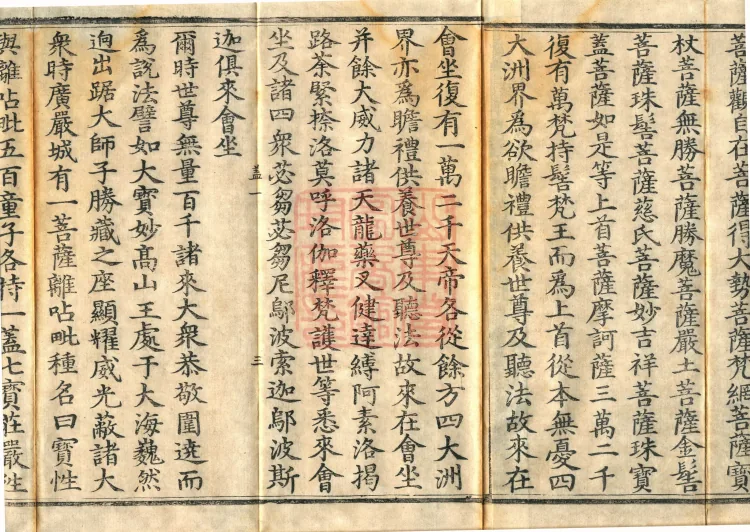 菩薩觀自在菩薩得大勢菩薩梵網菩薩寶
杖菩薩無勝菩薩勝魔菩薩嚴土菩薩金髻
菩薩珠髻菩薩慈氏菩薩妙吉祥菩薩珠寶
蓋菩薩如是等上首菩薩摩訶薩三萬二千
復有萬梵持髻梵王而為上首從本無憂四
大洲界為欲瞻禮供養世尊及聽法故來在
會坐復有一萬二千天帝各從餘方四大洲
界亦為瞻禮供養世尊及聽法故來在會坐
并餘大威力諸天龍藥叉健達縛阿素洛揭
路荼緊捺洛莫呼洛伽釋梵護世等悉來會
坐及諸四衆苾芻苾芻尼鄔波索迦鄔波斯
蓋一 三
迦俱來會坐
爾時世尊無量百千諸來大衆恭敬圍遶而
為說法譬如大寶妙高山王處于大海巍然
迥出踞大師子勝藏之座顯耀威光蔽諸大
衆時廣嚴城有一菩薩離呫毗種名曰寶性
與離呫毗五百童子各持一蓋七寶莊嚴性